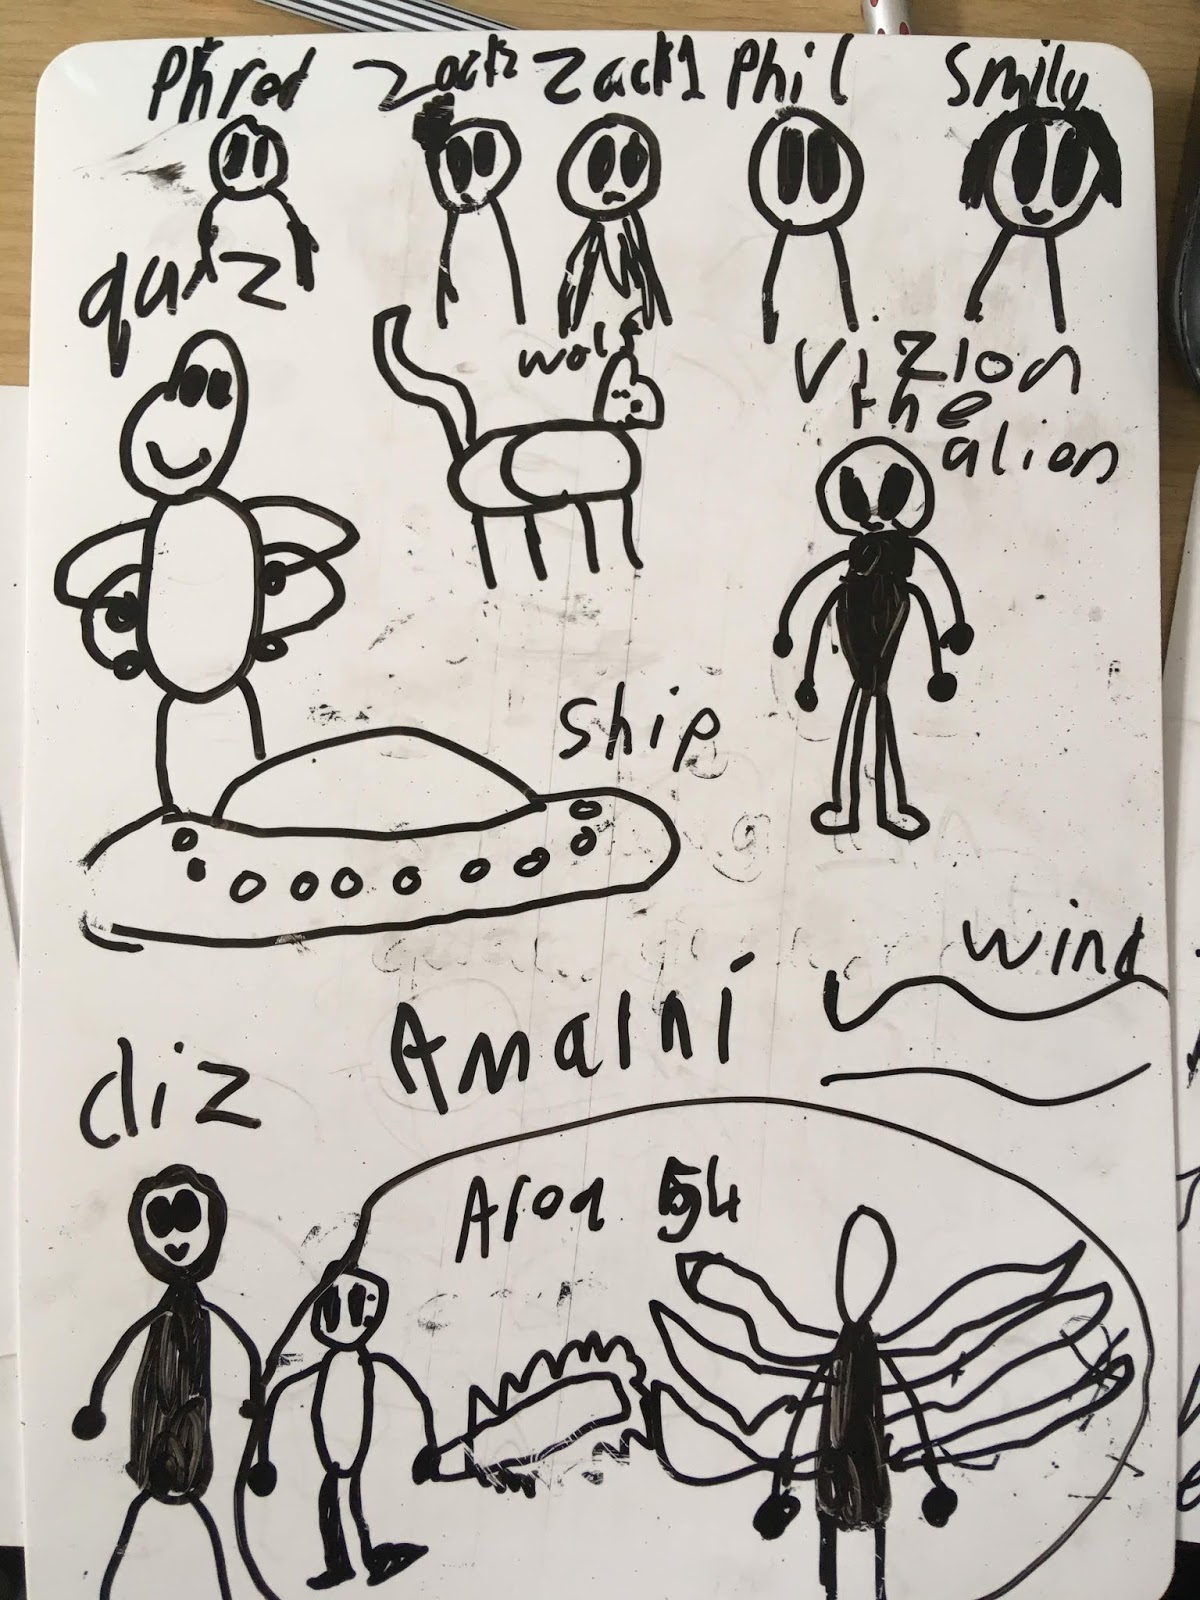 Phred Zack2 Zack1 Phil Smily
quiz
wolf
Vizion
the
alien
Ship
wind
Amalni
diz
Aroa 54